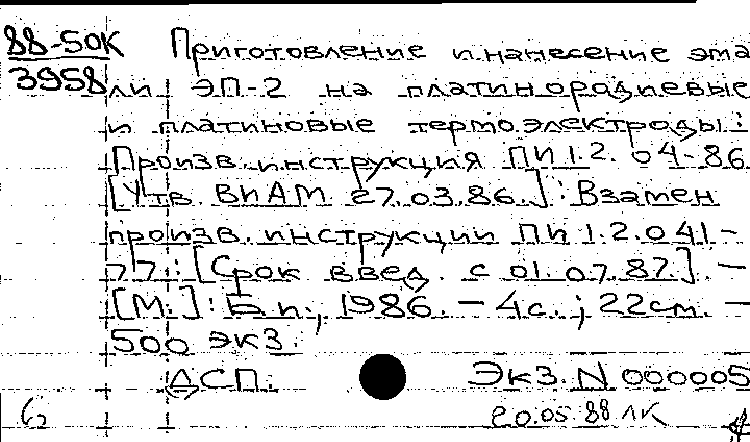 88-50К Приготовление и нанесение эма
3958 ли ЭП-2 на платинородиевые
и платиновые термоэлектроды:
Произв. инструкция ПИ 1.2.04-86
[Утв. ВИАМ 27.03.86.]: Взамен
произв. инструкции ПИ 1.2.041-
77: [Срок введ. с 01.07.87.] –
[М.]: Б.и., 1986. – 4с.; 22см. –
500 экз.
ДСП. Экз. N 000005
20.05.88 ЛК